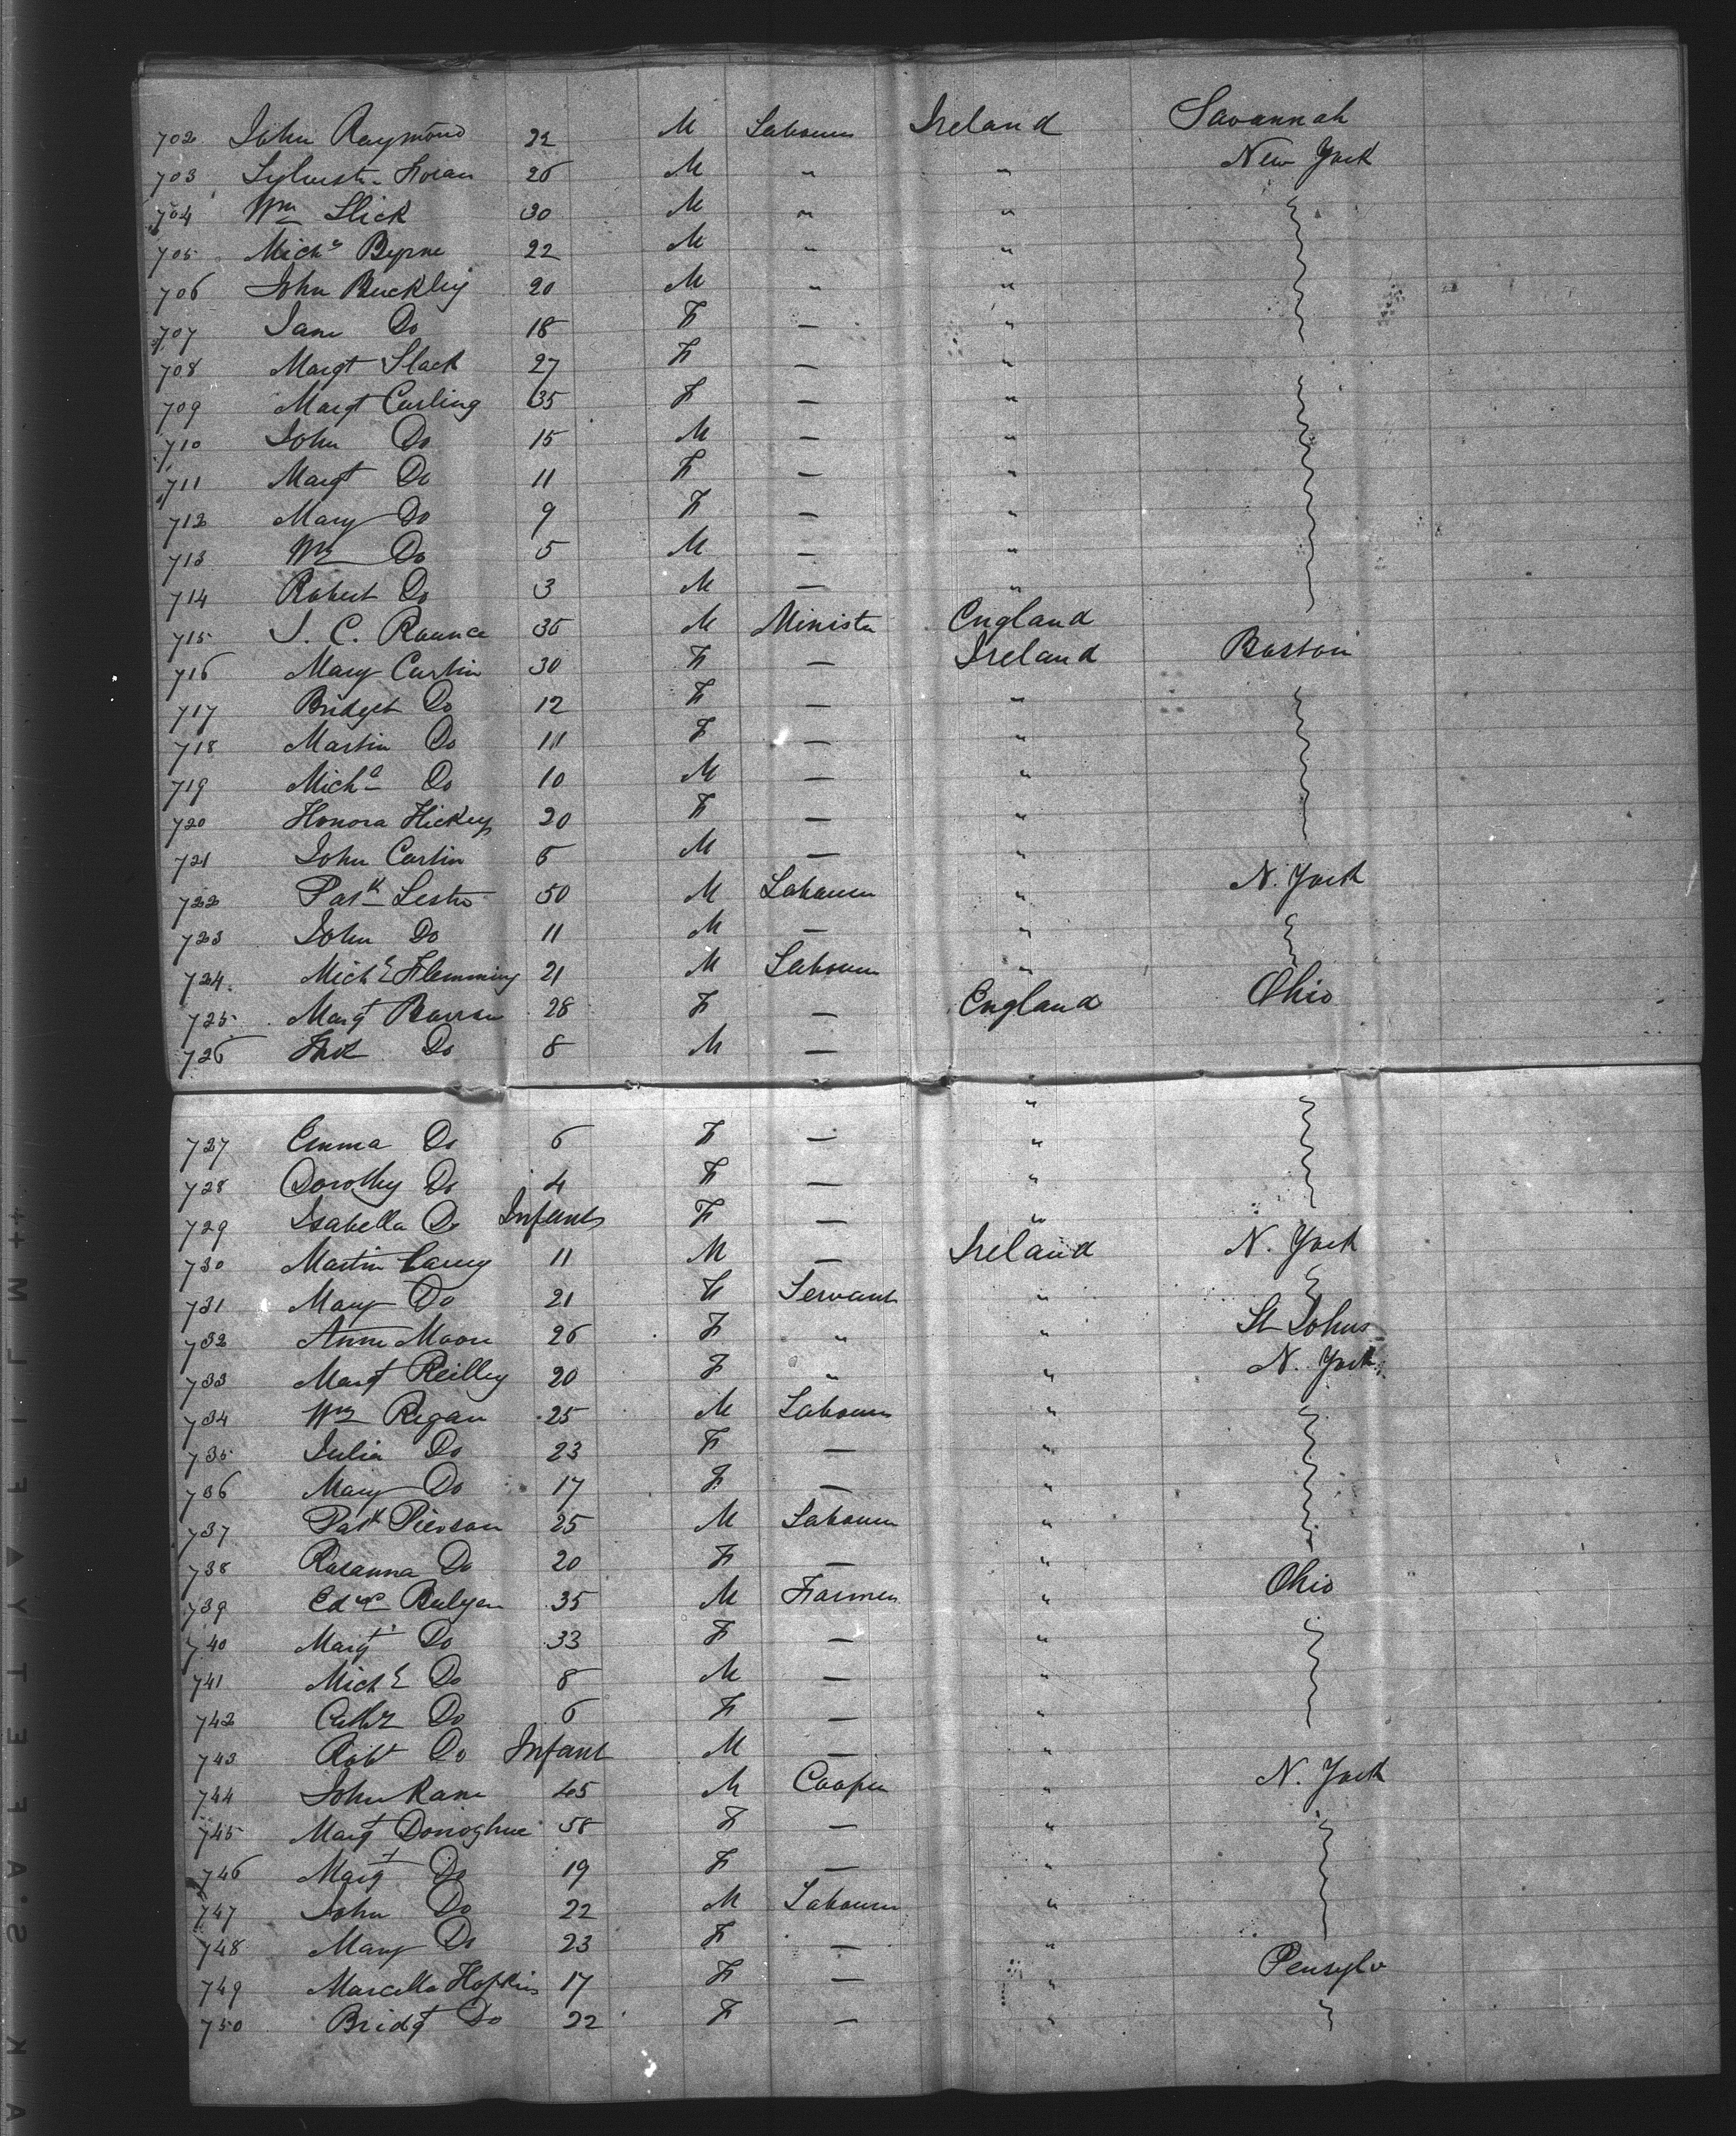 702 John Raymond 22 M Labourer Ireland Savannah
703 Sylvestr Horan 26 M " " New York
704 Wm Slick 30 M " "
705 Michl Byrne 22 M " "
706 John Buckley 20 M " "
707 Jane Do 18 F — "
708 Margt Slack 27 F — "
709 Margt Carling 35 F — "
710 John Do 15 M — "
711 Margt Do 11 F — "
712 Mary Do 9 F — "
713 Wm Do 5 M — "
714 Robert Do 3 M — "
715 J. C. Raunce 36 M Minister England
716 Mary Curtin 30 F — Ireland Boston
717 Bridget Do 12 F — "
718 Martin Do 11 F — "
719 Michl Do 10 M — "
720 Honora Hickey 20 F — "
721 John Curtin 6 M — "
722 Patk 50 M Labourer " N. York
723 John Do 11 M — "
724 Michl Flemming 21 M Labourer "
725 Margt 28 F — England Ohio
726 Do 8 M — "
727 Emma Do 6 F — "
728 Dorothy Do 4 F — "
729 Isabella Do Infant F — "
730 Martin Carey 11 M — Ireland N. York
731 Mary Do 21 F Servant "
732 Anne Moore 26 F " " St Johns
733 Margt Reilley 20 F " " N. York
734 Wm Regan 25 M Labourer "
735 Julia Do 23 F — "
736 Mary Do 17 F — "
737 Patk Pierson 25 M Labourer "
738 Rosanna Do 20 F — "
739 Edwd Bulger 35 M Farmer " Ohio
740 Margt Do 33 F — "
741 Michl Do 8 M — "
742 Cathr Do 6 F — "
743 Robt Do Infant M — "
744 John Kane 45 M Cooper " N. York
745 Margt Donoghue 58 F — "
746 Margt Do 19 F — "
747 John Do 22 M Labourer "
748 Mary Do 23 F — "
749 Marcella Hopkins 17 F — " Pensylv
750 Bridgt Do 22 F — "